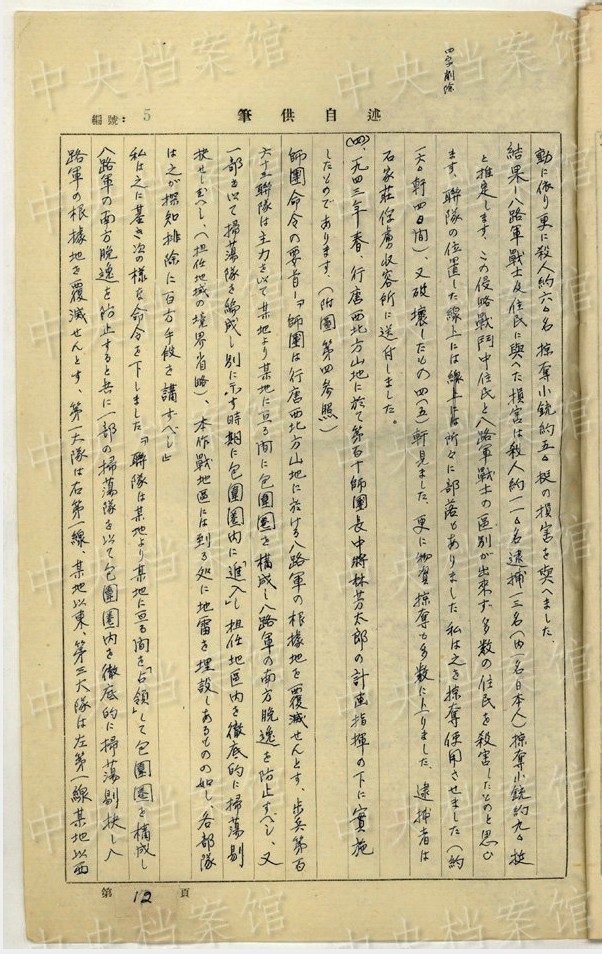 四字削除
編號： 5
筆供自述
動に依り更に殺人約六〇名 掠奪小銃約五〇挺の損害を與へました、
結果 八路軍戰士及住民に與へた損害は殺人約一一〇名 逮捕一三名（内一名日本人）掠奪小銃約九〇挺
と推定します、この侵略戰鬥中住民と八路軍戰士の區別が出來ず多数の住民を殺害したものと思ひ
ます、聯隊の位置した線上には線上には所々に部落もありました 私は之を掠奪使用させました（約
一六〇軒 四日間）、又破壊したもの四（五）軒見ました、更に物資掠奪も多数に上りました、逮捕者は
石家莊俘虜収容所に送付しました。
（四）、一九四三年春、行唐西北方山地に於て第百十師團長中將林芳太郎の計画指揮の下に實施
したものであります、（附圖第四参照）
師團命令の要旨「師團は行唐西北方山地に於ける八路軍の根據地を覆滅せんとす、歩兵第百
六十三聯隊は主力を以て某地より某地に亘る間に包圍圏を構成し八路軍の南方脱逸を防止すべし、又
一部を以て掃蕩隊を編成し別に示す時期に包圍圏内に「進入」し担任地區内を徹底的に掃蕩剔
抉せしむべし、（担任地域の境界省略）、本作戰地區には到る処に地雷を埋設しあるものの如し、各部隊
は之が探知排除に百方手段を講ずべし」
私は之に基き次の様な命令を下しました「聯隊は某地より某地に亘る間を「占領」して包圍圏を構成し
八路軍の南方脱逸を防止すると共に一部の掃蕩隊を以て包圍圏内を徹底的に掃蕩剔抉し八
路軍の根據地を覆滅せんとす、第一大隊は右第一線、某地以東、第三大隊は左第一線某地以西
第 12 頁
中央档案馆